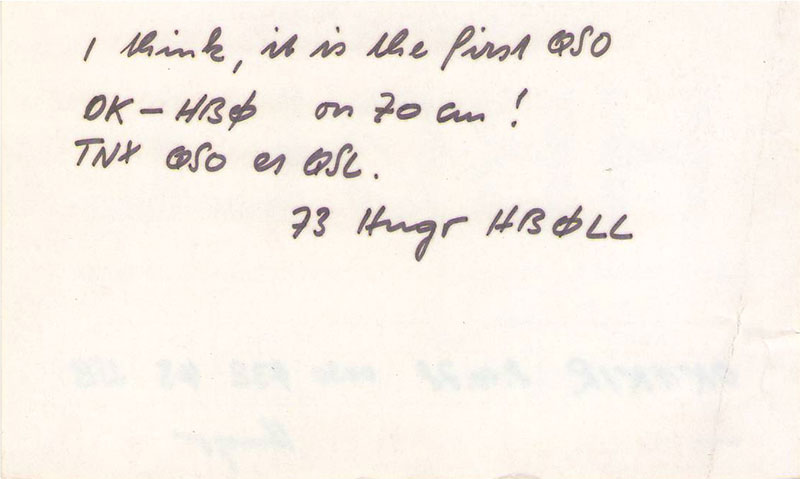 I think, it is the first QSO
OK – HBØ on 70 cm!
TNX QSO es QSL.
73 Hugr HBØLL